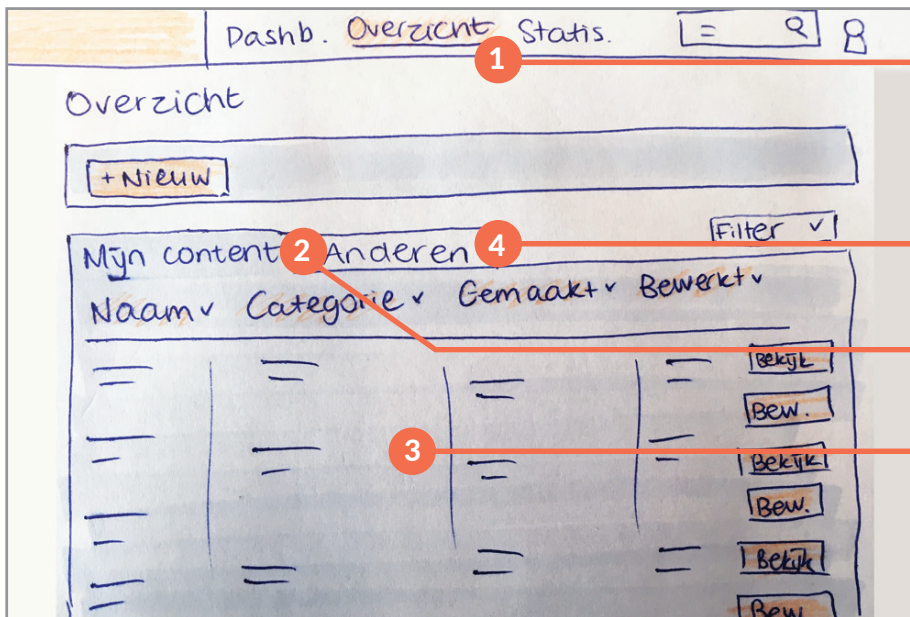 Dashb. Overzicht Statis.
1
Overzicht
+ Nieuw
Filter
Mijn content 2 Anderen 4
Naam Categorie Gemaakt Bewerkt
Bekijk
Bew.
3
Bekijk
Bew.
Bekijk
Bew.